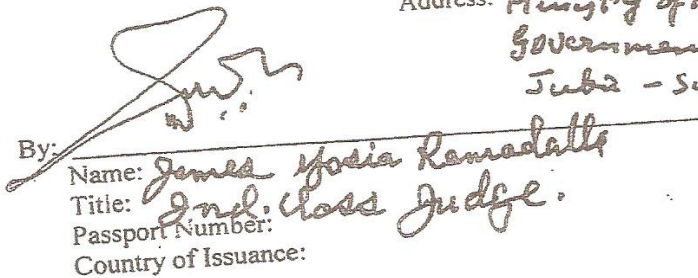 Address: Ministry of
Governmen
Juba - Su
By:
Name: James Yosia Ramadalla
Title: 2nd. Class Judge.
Passport Number:
Country of Issuance: